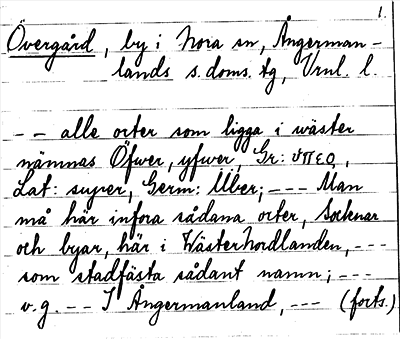 1.
Övergård, by i Nora sn, Ångerman-
lands s. doms. tg, Vnl. l.
-- alle orter som ligga i wäster
nämnas Öfwer, yfwer, Gr: υπερ,
Lat: super, Germ: Uber; --- Man
må här infora sådana orter, Socknar
och byar, här i WästerNordlanden, ---
som stadfästa sådant namn; ---
v.g. -- I Ångermanland, --- (forts.)